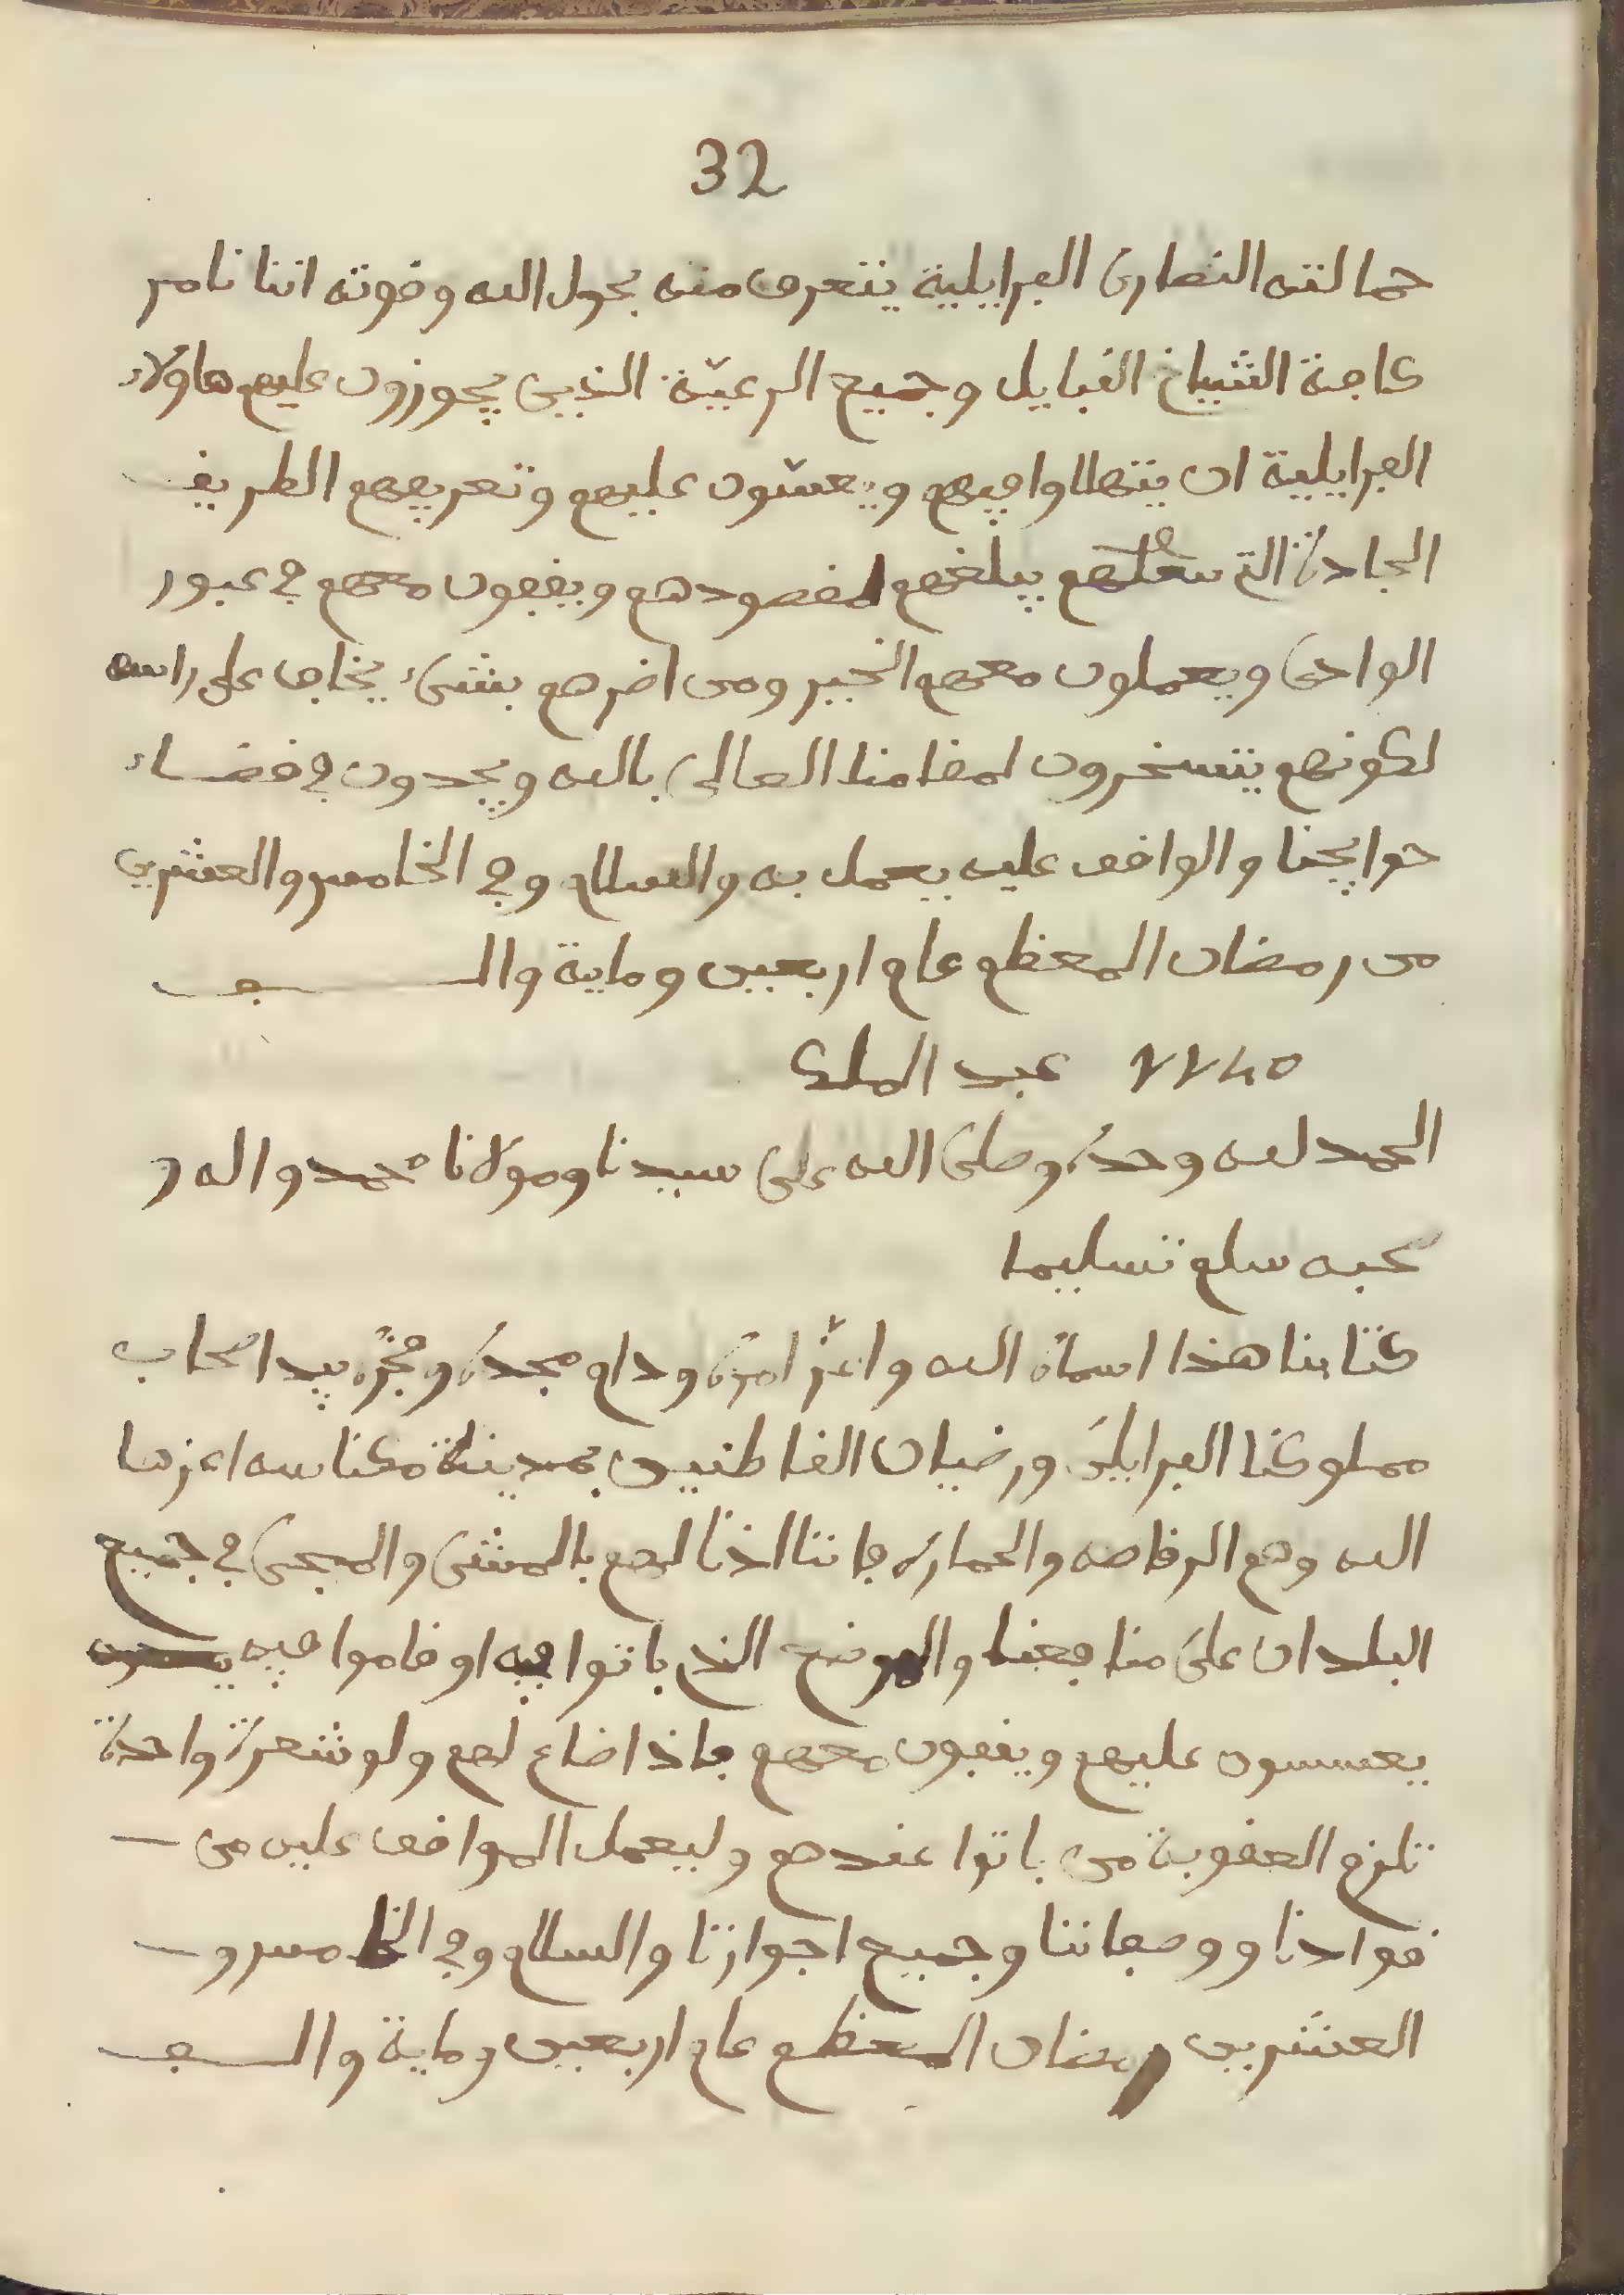 32
حمالته النصارى الفرايلية يتعرف منه بحول الله وقوته اننا نامر
كافة الشياخ القبايل وجميع الرعيّة الذيين يجوزون عليهم هاولاء
الفرايلية ان يتهلاوا فيهم ويعسّون عليهم وتعريفهم الطريق
الجادة التي يبلغهم لمقصودهم ويقفون معهم في عبور
الوادى ويعملون معهم الخير ومن اضرهم بشىء يخاف على راسه
لكونهم يتسخرون لمقامنا العالى بالله ويجدون في قضاء
حوايجنا والواقف عليه يعمل به والسلام وفي الخامس والعشرين
من رمضان المعظم عام اربعين وماية والف
1140 عبد الملك
الحمد لله وحده وصلى الله على سيدنا ومولانا محمد واله و
صحبه سلم تسليما
كتابنا هذا اسماه الله واعزّ امره ودام مجده وفخره بيد اصحاب
مملوكنا الفرايلى ورضيان القاطنيين بمدينة مكناسه اعزها
الله وهم الرقاصه والحماره فاننا اذنا لهم بالمشى والمجى في جميع
البلدان على منافعنا والموضع الذي باتوا فيه او قاموا فيه
يعسسون عليهم ويقفون معهم فاذا ضاع لهم ولو شعرة واحدة
تلزم العقوبة من باتوا عندهم وليعمل الموافق عليه من
قوادنا ووصفاننا وجميع اجوازنا والسلام وفي الخامس و
العشرين رمضان المعظم عام اربعين وماية والف